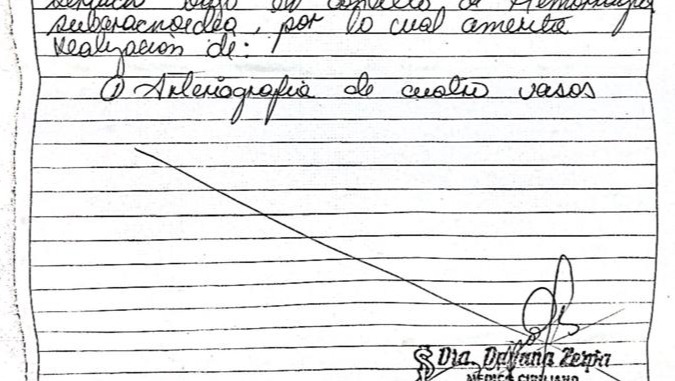 servicio bajo el contexto de Hemorragia
subaracnoidea, por lo cual amerita
realización de:
① Arteriografia de cuatro vasos
Dra. Dayana Zerpa
MEDICO CIRUJANO